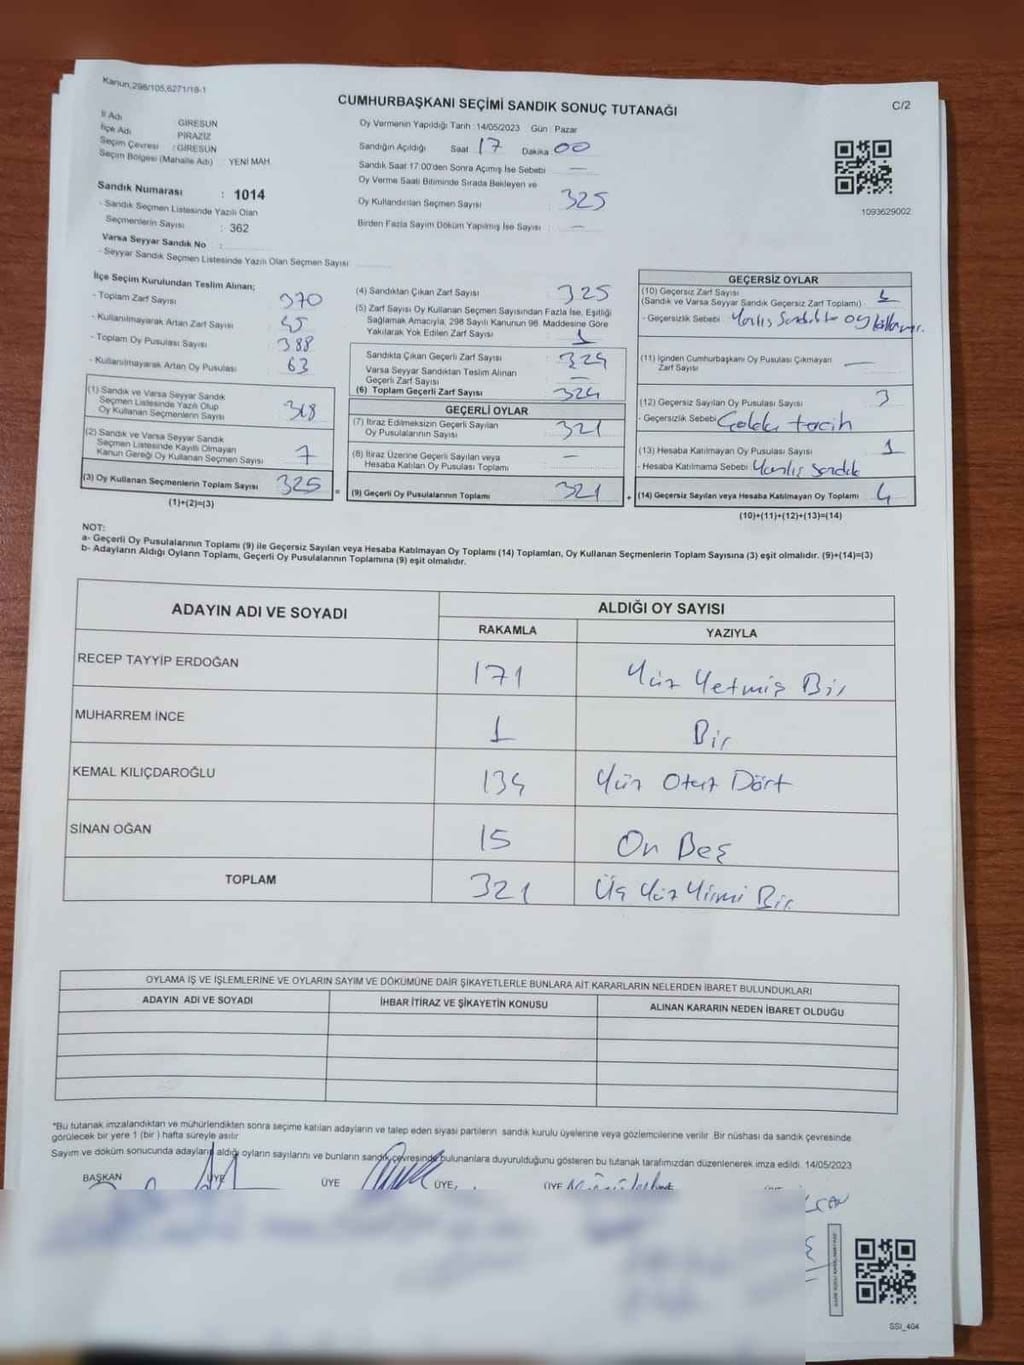 Kanun;298/105,6271/18-1
CUMHURBAŞKANI SEÇİMİ SANDIK SONUÇ TUTANAĞI
C/2
İl Adı GİRESUN
İlçe Adı PİRAZİZ
Seçim Çevresi : GİRESUN
Seçim Bölgesi (Mahalle Adı) YENİ MAH
Sandık Numarası : 1014
- Sandık Seçmen Listesinde Yazılı Olan
Seçmenlerin Sayısı : 362
Varsa Seyyar Sandık No :
- Seyyar Sandık Seçmen Listesinde Yazılı Olan Seçmen Sayısı
Oy Vermenin Yapıldığı Tarih : 14/05/2023 Gün Pazar
Sandığın Açıldığı Saat 17 Dakika 00
Sandık Saat 17:00'den Sonra Açımış İse Sebebi —
Oy Verme Saati Bitiminde Sırada Bekleyen ve
Oy Kullandırılan Seçmen Sayısı 325
Birden Fazla Sayım Döküm Yapılmış İse Sayısı —
1093629002
İlçe Seçim Kurulundan Teslim Alınan;
- Toplam Zarf Sayısı 370
- Kullanılmayarak Artan Zarf Sayısı 45
- Toplam Oy Pusulası Sayısı 388
- Kullanılmayarak Artan Oy Pusulası 63
(1) Sandık ve Varsa Seyyar Sandık
Seçmen Listesinde Yazılı Olup
Oy Kullanan Seçmenlerin Sayısı 318
(2) Sandık ve Varsa Seyyar Sandık
Seçmen Listesinde Kayıtlı Olmayan
Kanun Gereği Oy Kullanan Seçmen Sayısı 7
(3) Oy Kullanan Seçmenlerin Toplam Sayısı 325
(1)+(2)=(3)
(4) Sandıktan Çıkan Zarf Sayısı 325
(5) Zarf Sayısı Oy Kullanan Seçmen Sayısından Fazla İse, Eşitliği
Sağlamak Amacıyla, 298 Sayılı Kanunun 98. Maddesine Göre
Yakılarak Yok Edilen Zarf Sayısı 1
Sandıkta Çıkan Geçerli Zarf Sayısı 324
Varsa Seyyar Sandıktan Teslim Alınan
Geçerli Zarf Sayısı —
(6) Toplam Geçerli Zarf Sayısı 324
GEÇERLİ OYLAR
(7) İtiraz Edilmeksizin Geçerli Sayılan
Oy Pusulalarının Sayısı 321
(8) İtiraz Üzerine Geçerli Sayılan veya
Hesaba Katılan Oy Pusulası Toplamı —
= (9) Geçerli Oy Pusulalarının Toplamı 321
GEÇERSİZ OYLAR
(10) Geçersiz Zarf Sayısı
(Sandık ve Varsa Seyyar Sandık Geçersiz Zarf Toplamı) 1
- Geçersizlik Sebebi Yanlış Sandıkta oy kullanmış.
(11) İçinden Cumhurbaşkanı Oy Pusulası Çıkmayan
Zarf Sayısı —
(12) Geçersiz Sayılan Oy Pusulası Sayısı 3
- Geçersizlik Sebebi Çoklu tercih
(13) Hesaba Katılmayan Oy Pusulası Sayısı 1
- Hesaba Katılmama Sebebi Yanlış sandık
+ (14) Geçersiz Sayılan veya Hesaba Katılmayan Oy Toplamı 4
(10)+(11)+(12)+(13)=(14)
NOT:
a- Geçerli Oy Pusulalarının Toplamı (9) ile Geçersiz Sayılan veya Hesaba Katılmayan Oy Toplamı (14) Toplamları, Oy Kullanan Seçmenlerin Toplam Sayısına (3) eşit olmalıdır. (9)+(14)=(3)
b- Adayların Aldığı Oyların Toplamı, Geçerli Oy Pusulalarının Toplamına (9) eşit olmalıdır.
ADAYIN ADI VE SOYADI
ALDIĞI OY SAYISI
RAKAMLA YAZIYLA
RECEP TAYYİP ERDOĞAN 171 Yüz Yetmiş Bir
MUHARREM İNCE 1 Bir
KEMAL KILIÇDAROĞLU 134 Yüz Otuz Dört
SİNAN OĞAN 15 On Beş
TOPLAM 321 Üç Yüz Yirmi Bir
OYLAMA İŞ VE İŞLEMLERİNE VE OYLARIN SAYIM VE DÖKÜMÜNE DAİR ŞİKAYETLERLE BUNLARA AİT KARARLARIN NELERDEN İBARET BULUNDUKLARI
ADAYIN ADI VE SOYADI İHBAR İTİRAZ VE ŞİKAYETİN KONUSU ALINAN KARARIN NEDEN İBARET OLDUĞU
*Bu tutanak imzalandıktan ve mühürlendikten sonra seçime katılan adayların ve talep eden siyasi partilerin sandık kurulu üyelerine veya gözlemcilerine verilir. Bir nüshası da sandık çevresinde
görülecek bir yere 1 (bir) hafta süreyle asılır
Sayım ve döküm sonucunda adayların aldığı oyların sayılarını ve bunların sandık çevresinde bulunanlara duyurulduğunu gösteren bu tutanak tarafımızdan düzenlenerek imza edildi. 14/05/2023
BAŞKAN ÜYE ÜYE ÜYE, ÜYE
SSI_404